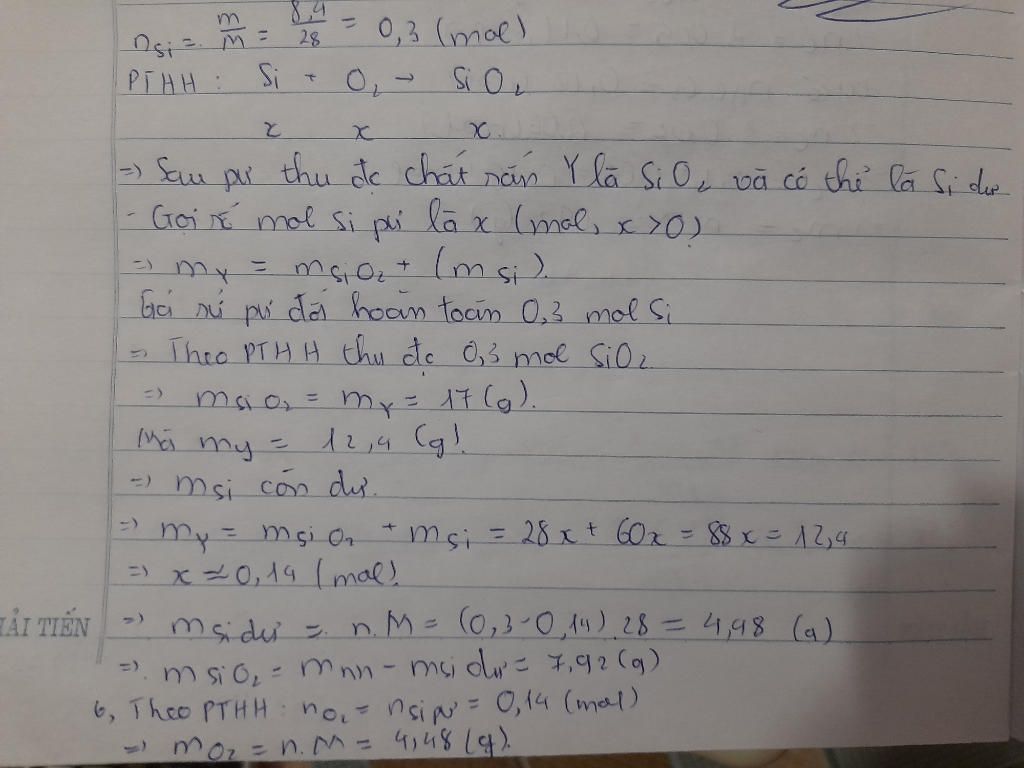 nSi = m/M = 8,4/28 = 0,3 (mol)
PTHH : Si + O₂ → SiO₂
x x x
=> Sau pư thu đc chất rắn Y là SiO₂ và có thể là Si dư
- Gọi số mol Si pư là x (mol, x > 0)
=> mY = mSiO₂ + (mSi).
Giả sử pư đối hoàn toàn 0,3 mol Si
=> Theo PTHH thu đc 0,3 mol SiO₂
=> mSiO₂ = mY = 17 (g).
Mà my = 12,4 (g).
=> mSi còn dư.
=> mY = mSiO₂ + mSi = 28x + 60x = 88x = 12,4
=> x ≈ 0,14 (mol).
ẢI TIẾN
=> mSi dư = n.M = (0,3-0,14).28 = 4,48 (g)
=> mSiO₂ = mnn - mSi dư = 7,92 (g)
b, Theo PTHH : nO₂ = nSi pư = 0,14 (mol)
=> mO₂ = n.M = 4,48 (g).